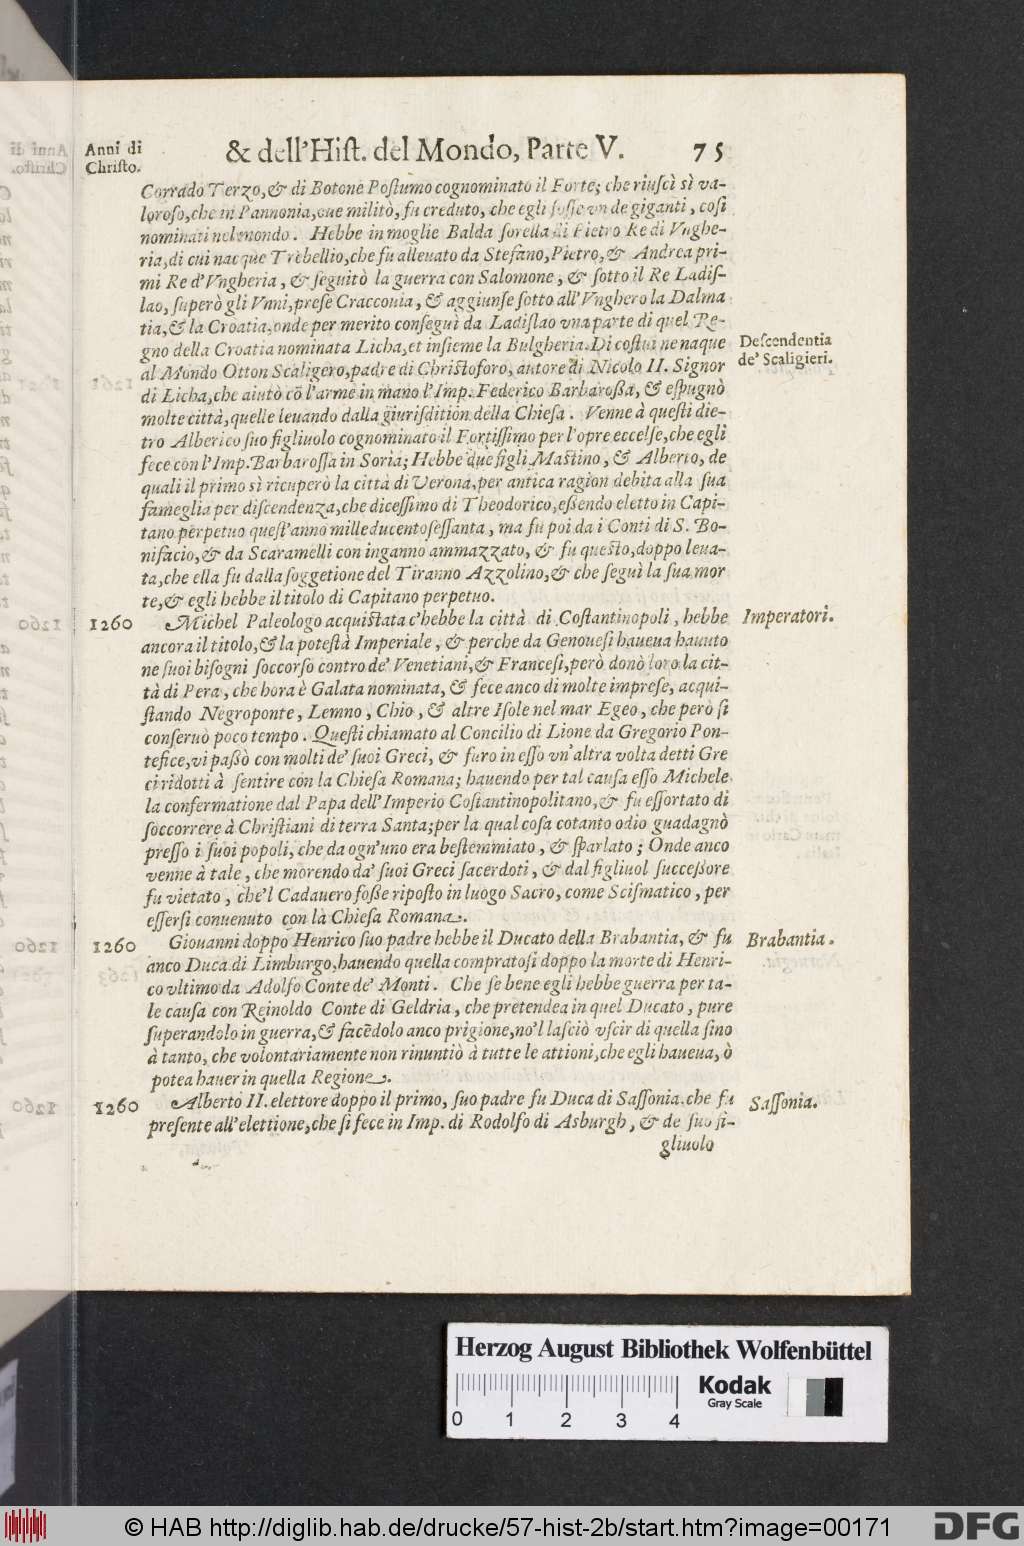 Anni di
Christo.
& dell'Hist. del Mondo, Parte V. 75
Corrado Terzo, & di Botone Postumo cognominato il Forte; che riuscì sì va-
loroso, che in Pannonia, oue militò, fu creduto, che egli fosse vn de giganti, così
nominati nel mondo. Hebbe in moglie Balda sorella di Pietro Re di Vnghe-
ria, di cui nacque Trebellio, che fu alleuato da Stefano, Pietro, & Andrea pri-
mi Re d'Vngheria, & seguitò la guerra con Salomone, & sotto il Re Ladis-
lao, superò gli Vnni, prese Cracconia, & aggiunse sotto all'Vnghero la Dalma
tia, & la Croatia, onde per merito conseguì da Ladislao vna parte di quel Re-
gno della Croatia nominata Licha, et insieme la Bulgheria. Di costui ne naque
Descendentia
de' Scaligieri.
al Mondo Otton Scaligero, padre di Christoforo, autore di Nicolo II. Signor
di Licha, che aiutò cō l'arme in mano l'Imp. Federico Barbarossa, & espugnò
molte città, quelle leuando dalla giurisdition della Chiesa. Venne à questi die-
tro Alberico suo figliuolo cognominato il Fortissimo per l'opre eccelse, che egli
fece con l'Imp. Barbarossa in Soria; Hebbe due figli Mastino, & Alberto, de
quali il primo sì ricuperò la città di Verona, per antica ragion debita alla sua
fameglia per discendenza, che dicessimo di Theodorico, essendo eletto in Capi-
tano perpetuo quest'anno mille ducento sessanta, ma fu poi da i Conti di S. Bo-
nifacio, & da Scaramelli con inganno ammazzato, & fu questo, doppo leua-
ta, che ella fu dalla soggetione del Tiranno Azzolino, & che seguì la sua mor
te, & egli hebbe il titolo di Capitano perpetuo.
1260 Michel Paleologo acquistata c'hebbe la città di Costantinopoli, hebbe Imperatori.
ancora il titolo, & la potestà Imperiale, & perche da Genouesi haueua hauuto
ne suoi bisogni soccorso contro de' Venetiani, & Francesi, però donò loro la cit-
tà di Pera, che hora è Galata nominata, & fece anco di molte imprese, acqui-
stando Negroponte, Lemno, Chio, & altre Isole nel mar Egeo, che però si
conseruò poco tempo. Questi chiamato al Concilio di Lione da Gregorio Pon-
tefice, vi passò con molti de' suoi Greci, & furo in esso vn'altra volta detti Gre
ci ridotti à sentire con la Chiesa Romana; hauendo per tal causa esso Michele
la confermatione dal Papa dell'Imperio Costantinopolitano, & fu essortato di
soccorrere à Christiani di terra Santa; per la qual cosa cotanto odio guadagnò
presso i suoi popoli, che da ogn'uno era bestemmiato, & sparlato; Onde anco
venne à tale, che morendo da' suoi Greci sacerdoti, & dal figliuol successore
fu vietato, che'l Cadauero fosse riposto in luogo Sacro, come Scismatico, per
essersi conuenuto con la Chiesa Romana.
1260 Giouanni doppo Henrico suo padre hebbe il Ducato della Brabantia, & fu Brabantia.
anco Duca di Limburgo, hauendo quella compratosi doppo la morte di Henri-
co vltimo da Adolfo Conte de' Monti. Che se bene egli hebbe guerra per ta-
le causa con Reinoldo Conte di Geldria, che pretendea in quel Ducato, pure
superandolo in guerra, & facēdolo anco prigione, no'l lasciò vscir di quella sino
à tanto, che volontariamente non rinuntiò à tutte le attioni, che egli haueua, ò
potea hauer in quella Regione.
1260 Alberto II. elettore doppo il primo, suo padre fu Duca di Sassonia, che fu Sassonia.
presente all'elettione, che si fece in Imp. di Rodolfo di Asburgh, & de suo fi-
gliuolo
Herzog August Bibliothek Wolfenbüttel
Kodak
Gray Scale
0 1 2 3 4
© HAB http://diglib.hab.de/drucke/57-hist-2b/start.htm?image=00171
DFG